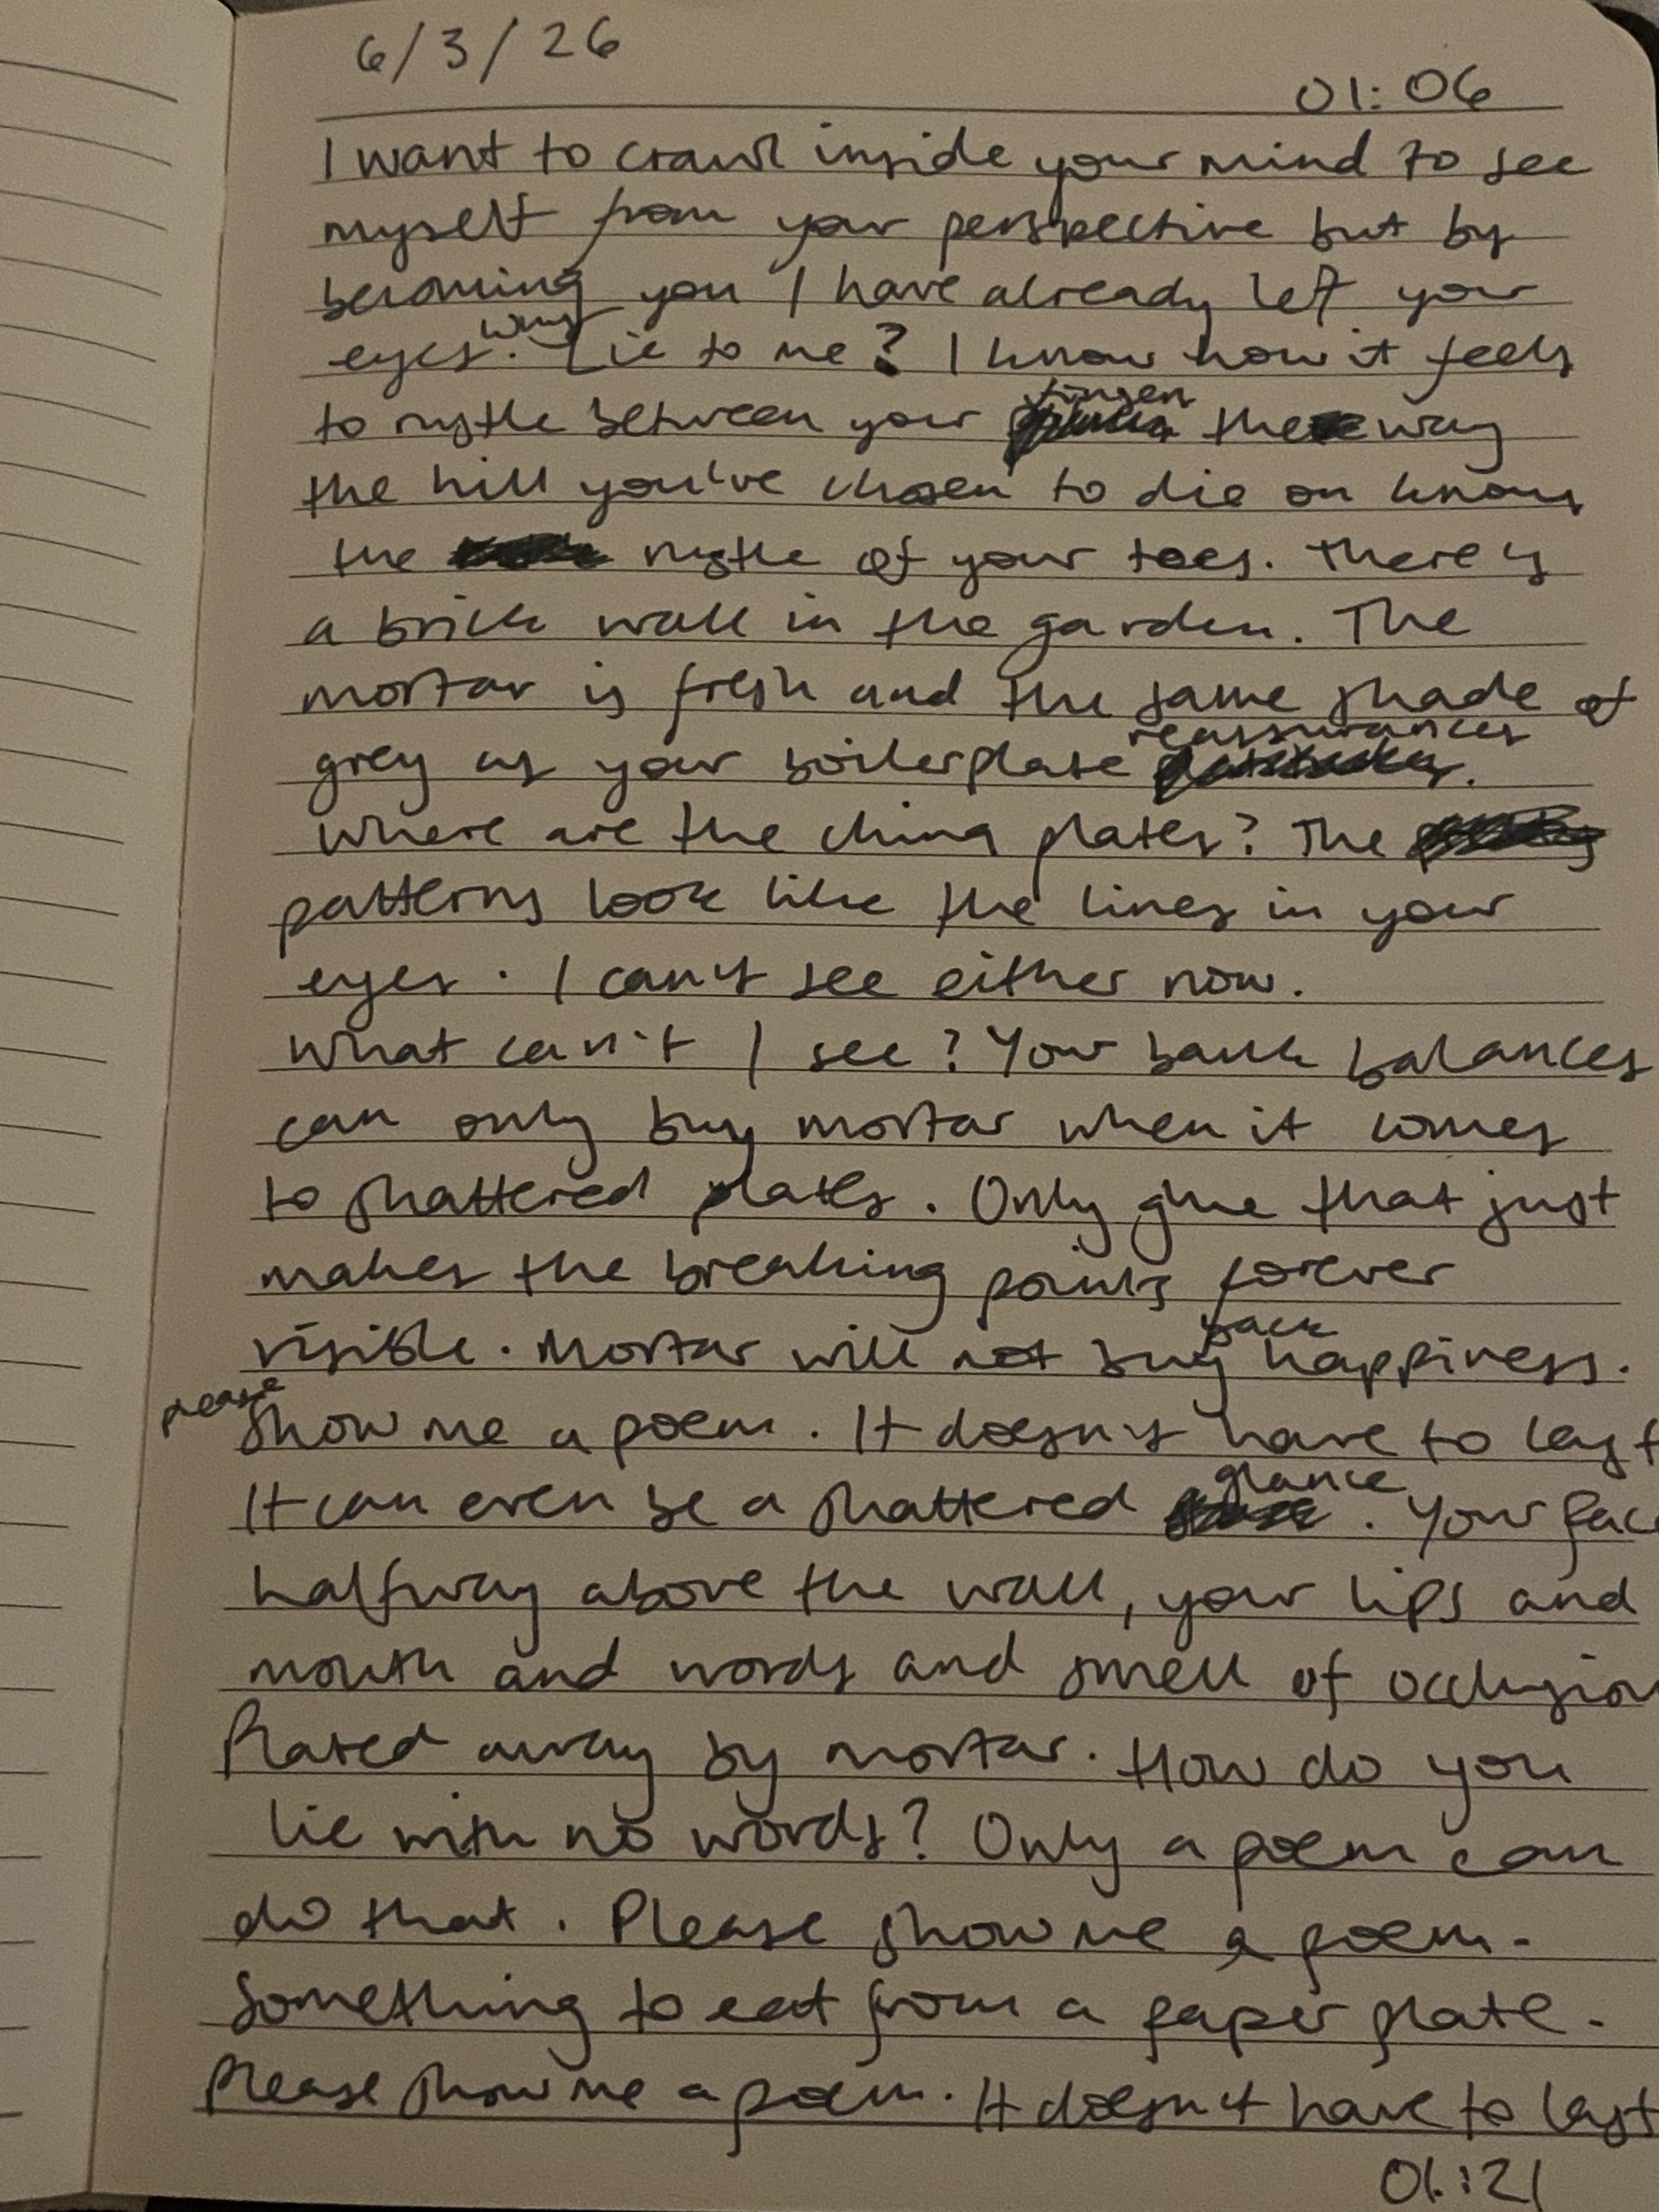 6/3/26
01:06
I want to crawl inside your mind to see
myself from your perspective but by
becoming you I have already left your
eyes. why Lie to me? I know how it feels
to nestle between your fingers the way
the hill you've chosen to die on knows
the nestle of your toes. There is
a brick wall in the garden. The
mortar is fresh and the same shade of
grey as your boilerplate reassurances.
Where are the china plates? The
patterns look like the lines in your
eyes. I can't see either now.
What can't I see? Your bank balances
can only buy mortar when it comes
to shattered plates. Only glue that just
makes the breaking points forever
visible. Mortar will not buy back happiness.
please Show me a poem. It doesn't have to last
It can even be a shattered glance. Your face
halfway above the wall, your lips and
mouth and words and smell of occlusion
Plated away by mortar. How do you
lie with no words? Only a poem can
do that. Please show me a poem.
Something to eat from a paper plate.
Please show me a poem. It doesn't have to last
01:21